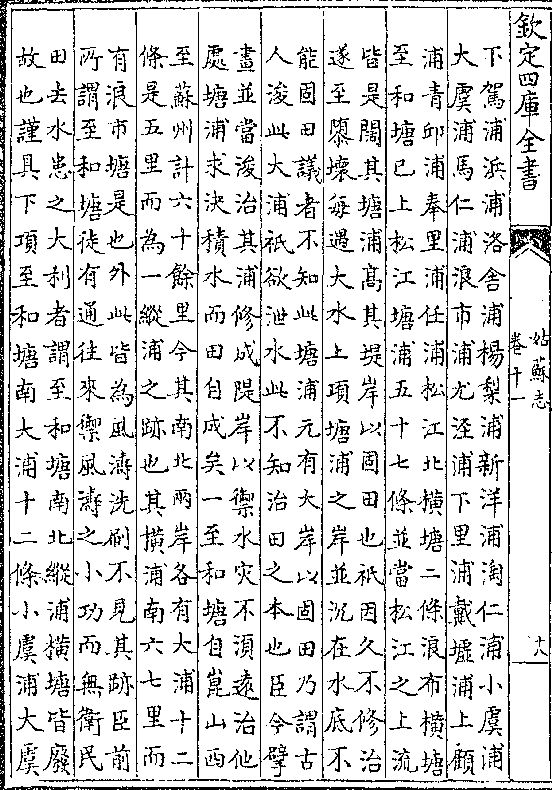 欽定四庫全書
姑蘇志
卷十一
十八
下駕浦浜浦洛舍浦楊梨浦新洋浦淘仁浦小虞浦
大虞浦馬仁浦浪市浦尤涇浦下里浦戴墟浦上顧
浦青邱浦奉里浦任浦松江北橫塘二條浪布橫塘
至和塘已上松江塘浦五十七條並當松江之上流
皆是闊其塘浦高其堤岸以固田也祇因久不修治
遂至隳壞每遇大水上項塘浦之岸並沉在水底不
能固田議者不知此塘浦元有大岸以固田乃謂古
人浚此大浦祇欲泄水此不知治田之本也臣今擘
畫並當浚治其浦修成隄岸以禦水灾不須遠治他
處塘浦求決積水而田自成矣一至和塘自崑山西
至蘇州計六十餘里今其南北兩岸各有大浦十二
條是五里而為一縱浦之跡也其橫浦南六七里而
有浪市塘是也外此皆為風濤洗刷不見其跡臣前
所謂至和塘徒有通往來禦風濤之小功而無衛民
田去水患之大利者謂至和塘南北縱浦橫塘皆廢
故也謹具下項至和塘南大浦十二條小虞浦大虞